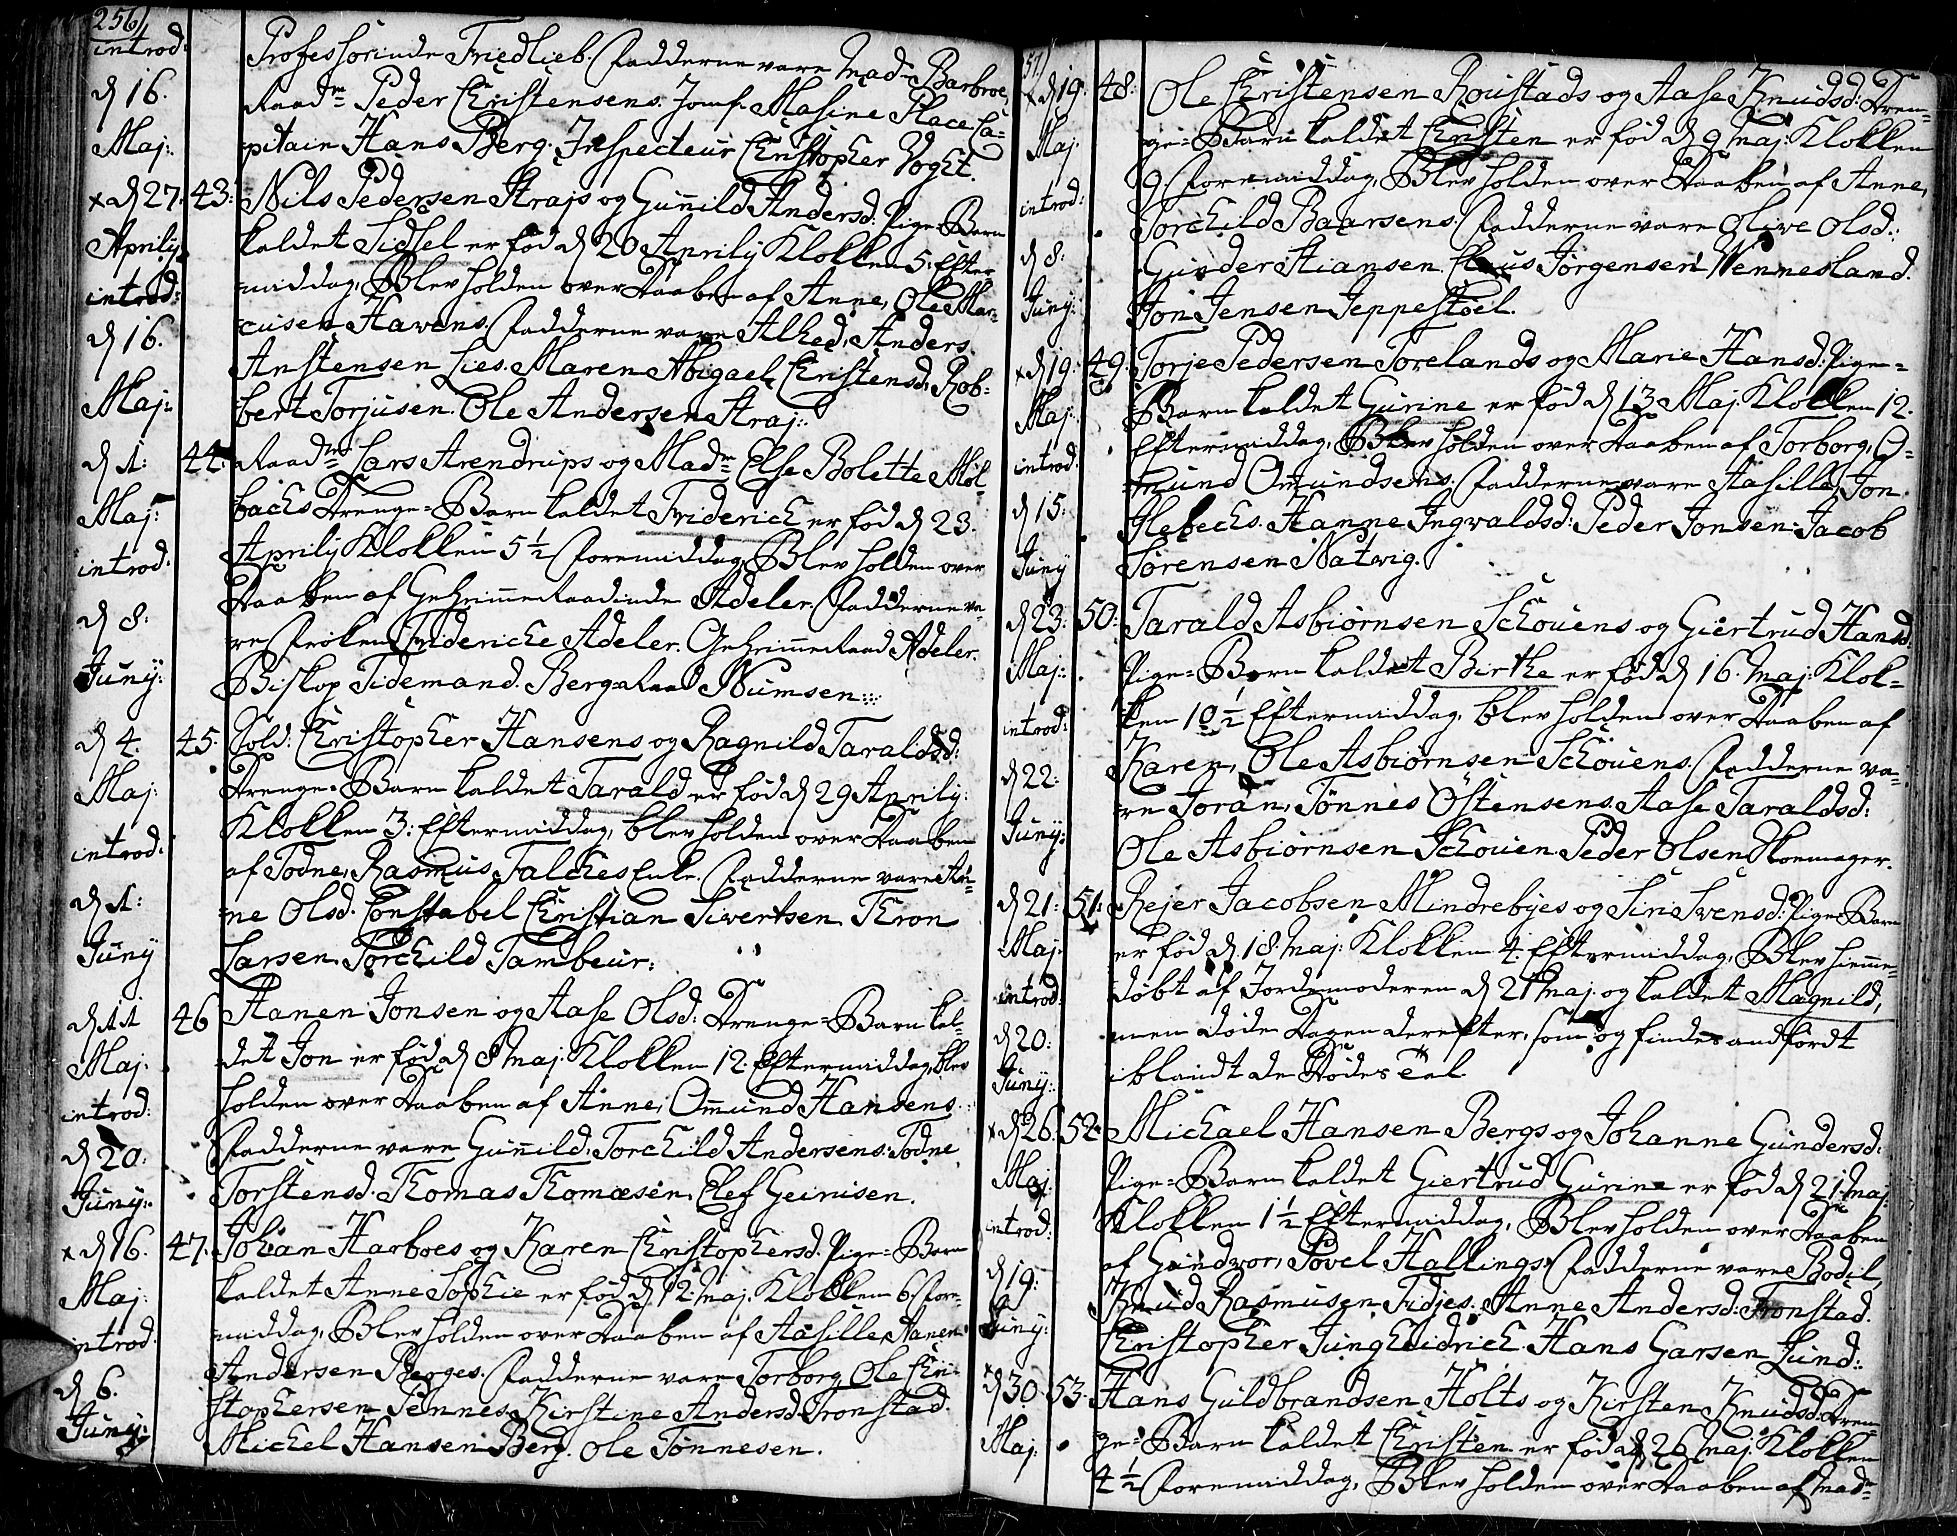 256
introd:
d 16.
Maj:
Professorinde Friedlieb. Fadderne vare Mad: Barbroe,
Raadm Peder Christensens. Jomf: Masine Place. Ca=
pitain Hans Berg. Inspecteur Christopher Voget.
x d 27. 43:
Aprilij
introd:
d 16.
Maj:
Nils Pedersen Strajs og Gunnild Andersd: Pige-Barn
kaldet Sidsel er fød d 20 Aprilij Klokken 5. Efter
middag, Blev holden over Daaben af Anne, Ole Mar=
cusen Havens. Fadderne vare Alhed, Anders
Anstensen Lies. Maren Abigael Christensd: Rob=
bert Torjusen. Ole Andersen Straj:
d 1: 44:
Maj:
introd:
d 8:
Juny:
Raadm Lars Arendrups og Madm Else Bolette Møl=
bachs Drenge=Barn kaldet Friderich er fød d 23.
Aprilij Klokken 5 1/2 Foremiddag, Blev holden over
Daaben af Geheimme Raadinde Adeler. Fadderne va=
re Frøken Fridericke Adeler. Geheimme Raad Adeler.
Biskop Tidemand. Berg=Raad Numsen:
d 4. 45.
Maj:
introd:
d 1:
Juny
Sold: Christopher Hansens og Ragnild Taraldsd:
Drenge=Barn kaldet Tarald er fød d 29 Aprilij:
Klokken 3: Eftermiddag, blev holden over Daaben
af Todne, Rasmus Falches Enke. Fadderne vare An=
ne Olsd. Constabel Christian Sivertsen. Thron
Larsen. Torchild Tambeur:
d 11 46
Maj.
introd:
d 20.
Juny:
Hanen Jonsen og Aase Olsd: Drenge=Barn kal=
det Jon er fød d 8 Maj: Klokken 12. Eftermiddag, blev
holden over Daaben af Anne, Omund Hansens.
Fadderne vare Gunnild, Torchild Andersens. Todne
Torstensd. Thomas Thomæsen. Elef Geinisen.
x d 16. 47.
Maj:
introd:
d 6.
Juny:
Johan Harboes og Karen Christophersd. Pige=Barn
kaldet Anne Sophie er fød d 12. Maj. Klokken 6 Fore=
middag, Blev holden over Daaben af Aasille, Hanen
Andersen Berges. Fadderne vare Torborg Ole Chri=
stophersen Pennes. Kirstine Andersd. Tronstad.
Michel Hansen Berg. Ole Tønnesen.
57
x d 19. 48:
Maj.
introd:
d 8:
Juny:
Ole Christensen Roustads og Aase Knudsd: Dren=
ge=Barn kaldet Christen er fød d 9 Maj: Klokken
9 Foremiddag, Blev holden over Daaben af Anne,
Torchild Baarsens. Fadderne vare Olive Olsd:
Gunder Stiansen. Claus Jørgensen Wennesland.
Jon Jensen Jeppestøel.
x d 19: 49:
Maj:
introd:
d 15:
Juny
Torje Pedersen Torelands og Marie Hansd: Pige=
Barn kaldet Gurine er fød d 13 Maj. Klokken 12.
Eftermiddag, Blev holden over Daaben af Torborg, O=
mund Omundsens. Fadderne vare Aasille, Jon
Slebechs. Hanne Ingvaldsd: Peder Jonsen. Jacob
Sørensen Natvig.
d 23: 50:
Maj:
introd:
d 22:
Juny:
Tarald Asbiørnsen Schouens og Giertrud Hansd:
Pige=Barn kaldet Birthe er fød d 16. Maj: Klok=
ken 10 1/2 Eftermiddag, blev holden over Daaben af
Karen, Ole Asbiørnsen Schouens. Fadderne va=
re Joran, Tønnes Østensens. Aase Taraldsd:
Ole Asbiørnsen Schouen. Peder Olsen Skomager.
d 21: 51:
Maj:
introd:
d 20:
Juny:
Rejer Jacobsen Mindrebyes og Siri Svensd: Pige=Barn
er fød d 18. Maj: Klokken 4. Eftermiddag, Blev hiemme=
døbt af Jordemoderen d 21 Maj. og kaldet Magnild,
men døde Dagen derefter, som og findes andførdt
iblandt de Dødes Tal
x d 26. 52.
Maj:
introd:
d 19:
Juny:
Michael Hansen Bergs og Johanne Gundersd:
Pige=Barn kaldet Giertrud Gurine er fød d 21. Maj
Klokken 1 1/2 Eftermiddag, Blev holden over Daaben
af Gundvor, Povel Hallings. Fadderne vare Bodil,
Knud Rasmusen Tidjes. Anne Andersd: Tronstad.
Christopher Jungheidrich. Hans Garsen Lund:
x d 30. 53.
Maj.
Hans Guldbrandsen Holts og Kirsten Knudsd: Dren
ge=Barn kaldet Christen er fød d 26 Maj: Klokken
4 1/2 Foremiddag, Blev holden over Daaben af Mad=